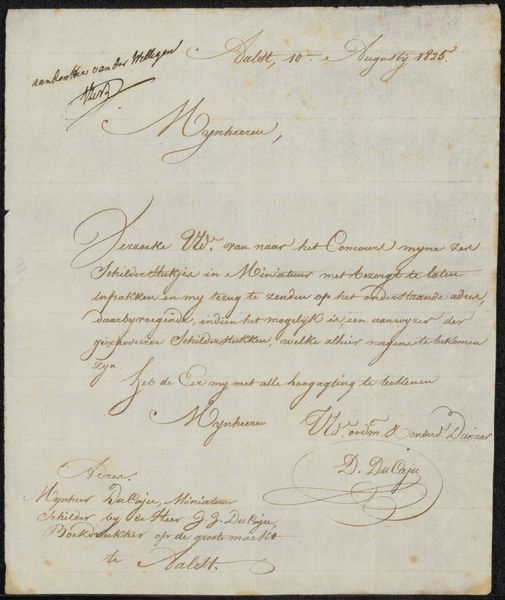 aan den Heer van der Willigen
Aalst, 10.n Augusty 1825.
Mynheeren,
Verzoeke UEd. van naar het Concours myne zes
Schilderstukjes in Miniatuur met bezorgt te laten
inpakken en my terug te zenden op het onderstaande adres,
daarbyvoegende, indien het mogelijk is, een aanwyzer der
geëxposeerde Schilderstukken, welke alhier nergens te bekomen
zyn.
Heb de Eer my met alle hoogagting te teekenen
Mynheeren
UEd. oodm. & onderd. Dienaar
D. DuCaju
Adres.
Mynheer DuCaju, Miniatuur
Schilder by de Heer J. J. DuCaju,
Boekdrukker op de groote markt
te Aalst.